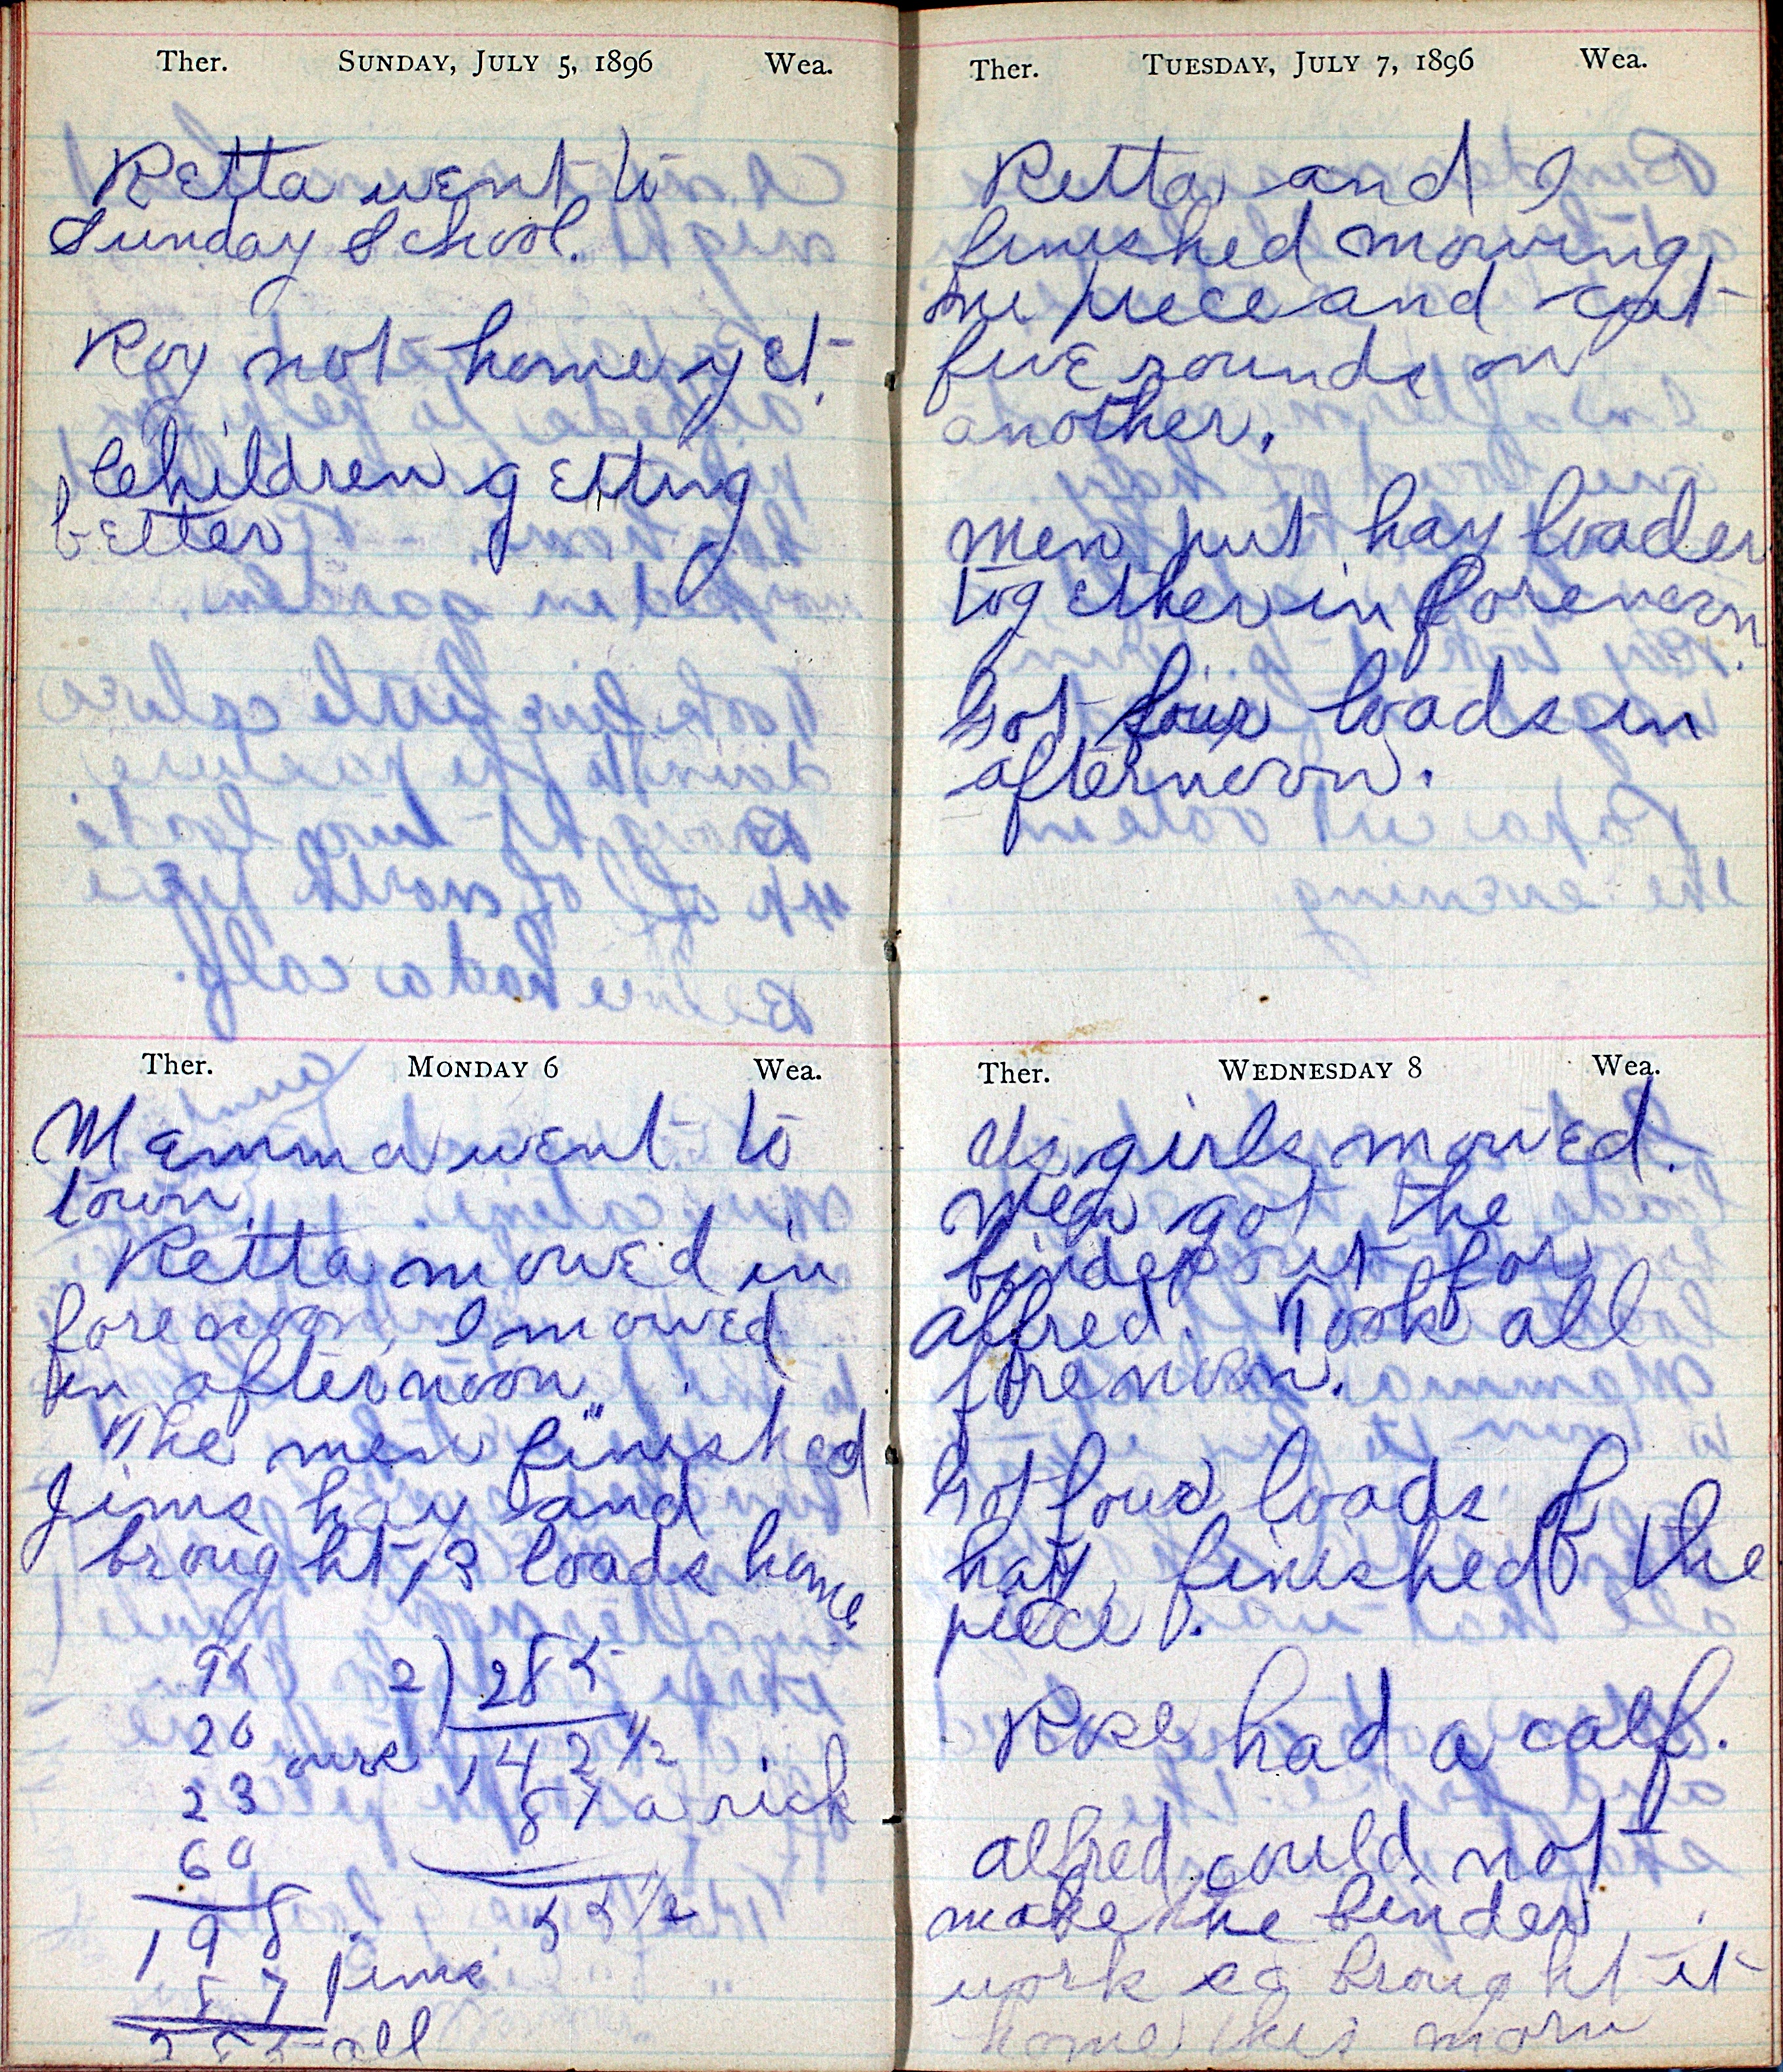 Ther. SUNDAY, JULY 5, 1896 Wea.
Retta went to
Sunday School.
Roy not home yet.
Children getting
better
Ther. MONDAY 6 Wea.
Mamma went to
town.
Retta mowed in
forenoon, I mowed
in afternoon.
The men finished
Jims hay and
brought 13 loads home
95
20
23
60
198
87 Jims
285 all
2) 285
ours 142 1/2
87 a rick
55 1/2
Ther. TUESDAY, JULY 7, 1896 Wea.
Retta and I
finished mowing
one piece and cut
five rounds on
another.
Men put hay loader
together in forenoon.
Got four loads in
afternoon.
Ther. WEDNESDAY 8 Wea.
Us girls mowed.
Men got the
binder out for
Alfred. Took all
forenoon.
Got four loads of
hay, finished the
piece.
Rose had a calf.
Alfred could not
make the binder
work so brought it
home this morn